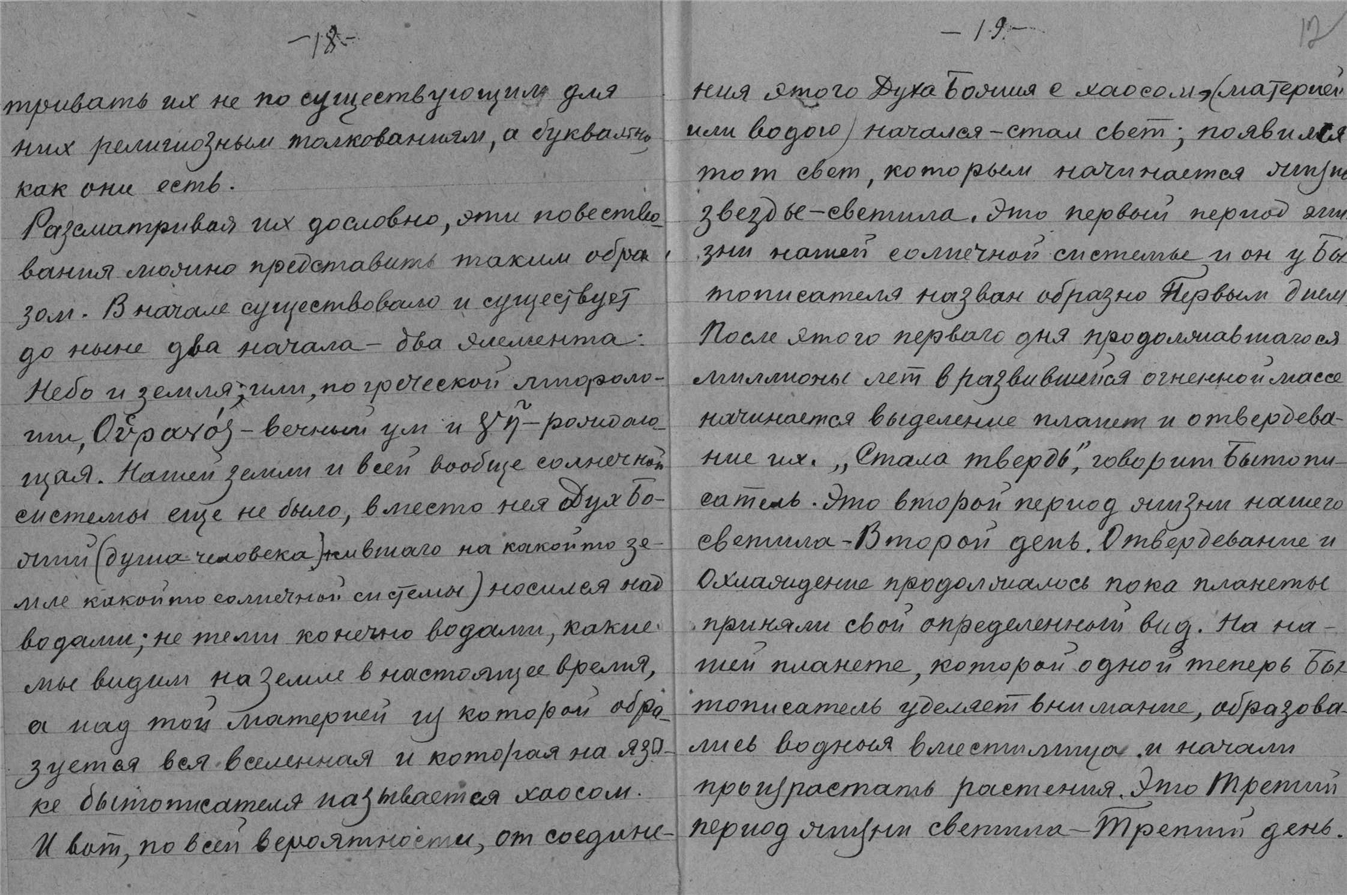 -18-
тривать их не по существующим для
них религиозным толкованиям, а буквально
как они есть.
Разсматривая их дословно, эти повество-
вания можно представить таким обра-
зом. В начале существовало и существует
до ныне два начала - два элемента:
Небо и земля; или, по греческой
гии, Οὐρανός - вечный ум и γῆ - рождаю-
щая. Нашей земли и всей вообще солнечной
системы еще не было, вместо нея Дух Бо-
жий (душа человека жившаго на какой то зе-
мле какой то солнечной системы) носился над
водами; не теми конечно водами, какие
мы видим на земле в настоящее время,
а над той материей из которой обра-
зуется вся вселенная и которая на язы-
ке бытописателя называется хаосом.
И вот, по всей вероятности, от соедине-
-19-
12
ния этого Духа Божия с хаосом, (материей
или водою) начался - стал свет; появился
тот свет, которым начинается жизнь
звезды - светила. Это первый период жи
зни нашей солнечной системы и он у Бы
тописателя назван образно Первым днем
После этого перваго дня продолжавшагося
миллионы лет в развившейся огненной массе
начинается выделение планет и отвердева-
ние их. „Стала твердь", говорит Бытопи-
сатель. Это второй период жизни нашего
светила - Второй день. Отвердевание и
охлаждение продолжалось пока планеты
приняли свой определенный вид. На на-
шей планете, которой одной теперь Бы
тописатель уделяет внимание, образова-
лись водныя вместилища и начали
произрастать растения. Это Третий
период жизни светила - Третий день.